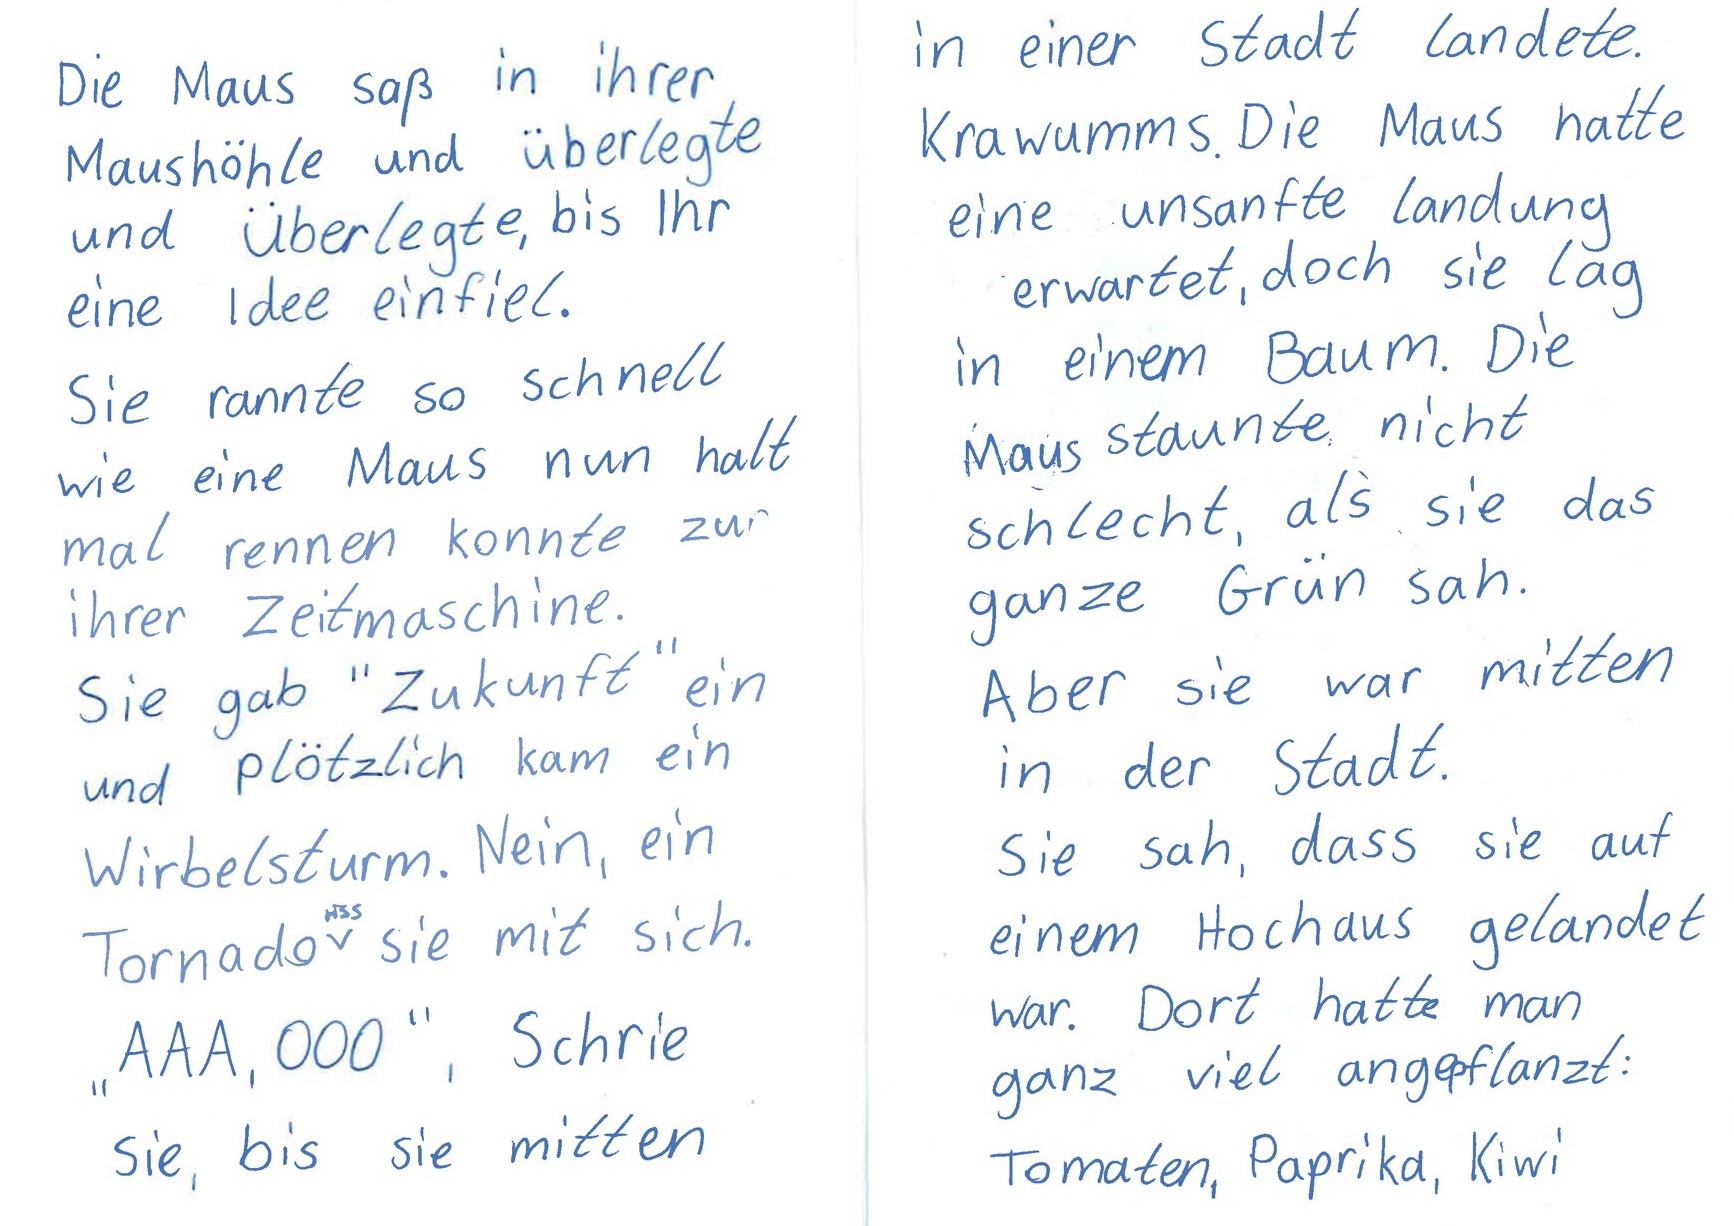 Die Maus saß in ihrer
Maushöhle und überlegte
und Überlegte, bis Ihr
eine Idee einfiel.
Sie rannte so schnell
wie eine Maus nun halt
mal rennen konnte zur
ihrer Zeitmaschine.
Sie gab "Zukunft" ein
und plötzlich kam ein
Wirbelsturm. Nein, ein
riss
Tornado sie mit sich.
„AAA, OOO", Schrie
Sie, bis sie mitten
in einer Stadt landete.
Krawumms. Die Maus hatte
eine unsanfte landung
erwartet, doch sie lag
in einem Baum. Die
Maus staunte nicht
schlecht, als sie das
ganze Grün sah.
Aber sie war mitten
in der Stadt.
Sie sah, dass sie auf
einem Hochaus gelandet
war. Dort hatte man
ganz viel angepflanzt:
Tomaten, Paprika, Kiwi